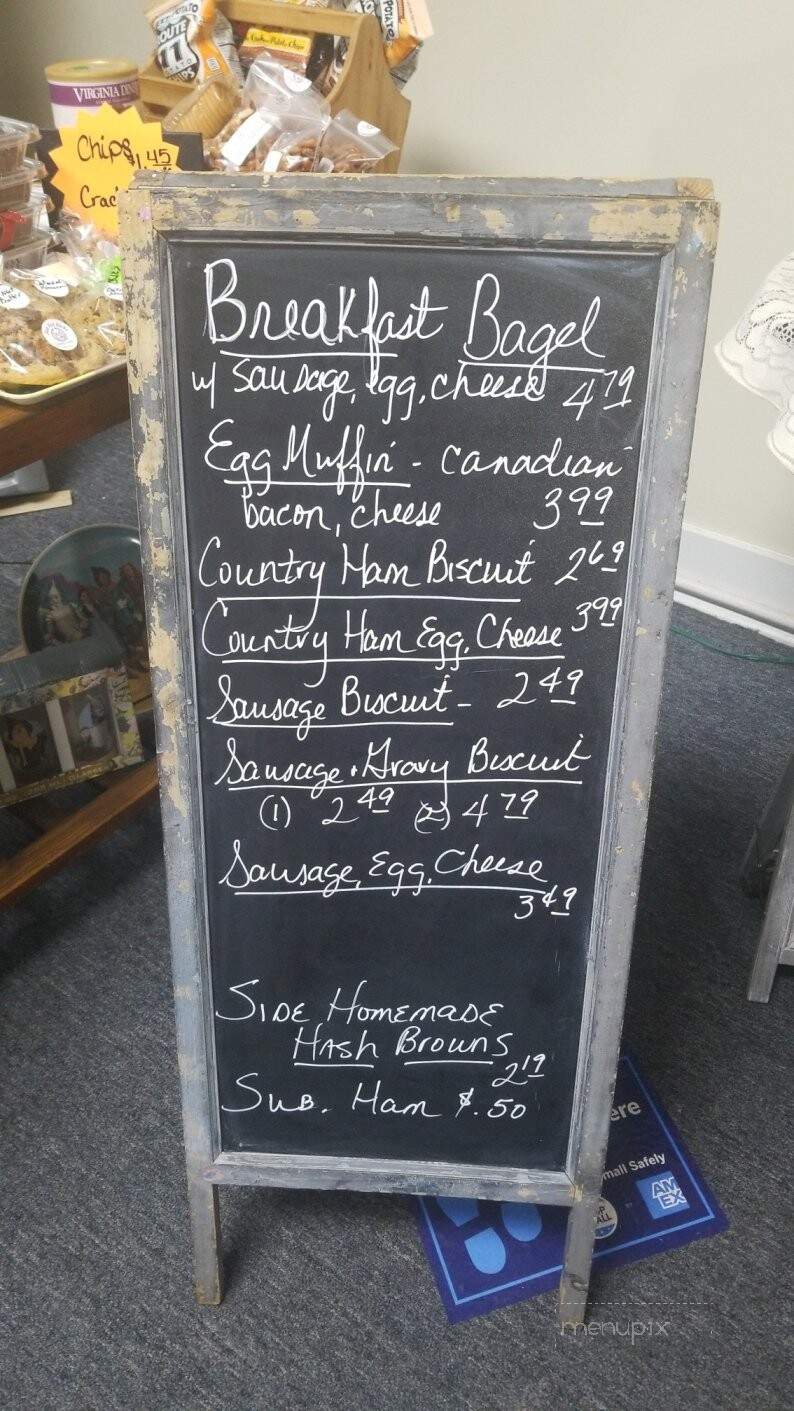 ROUTE
11
POTATO
CHIPS
VIRGINIA
Chips $1.45
Breakfast Bagel
w/ Sausage, egg, cheese 4.79
Egg Muffin - Canadian
bacon, cheese 3.99
Country Ham Biscuit 2.69
Country Ham Egg, Cheese 3.99
Sausage Biscuit - 2.49
Sausage + Gravy Biscuit
(1) 2.49 (2) 4.79
Sausage, Egg, Cheese
3.49
SIDE HOMEMADE
HASH BROWNS
2.19
SUB. Ham $.50
ere
mall Safely
AM
EX
menupix